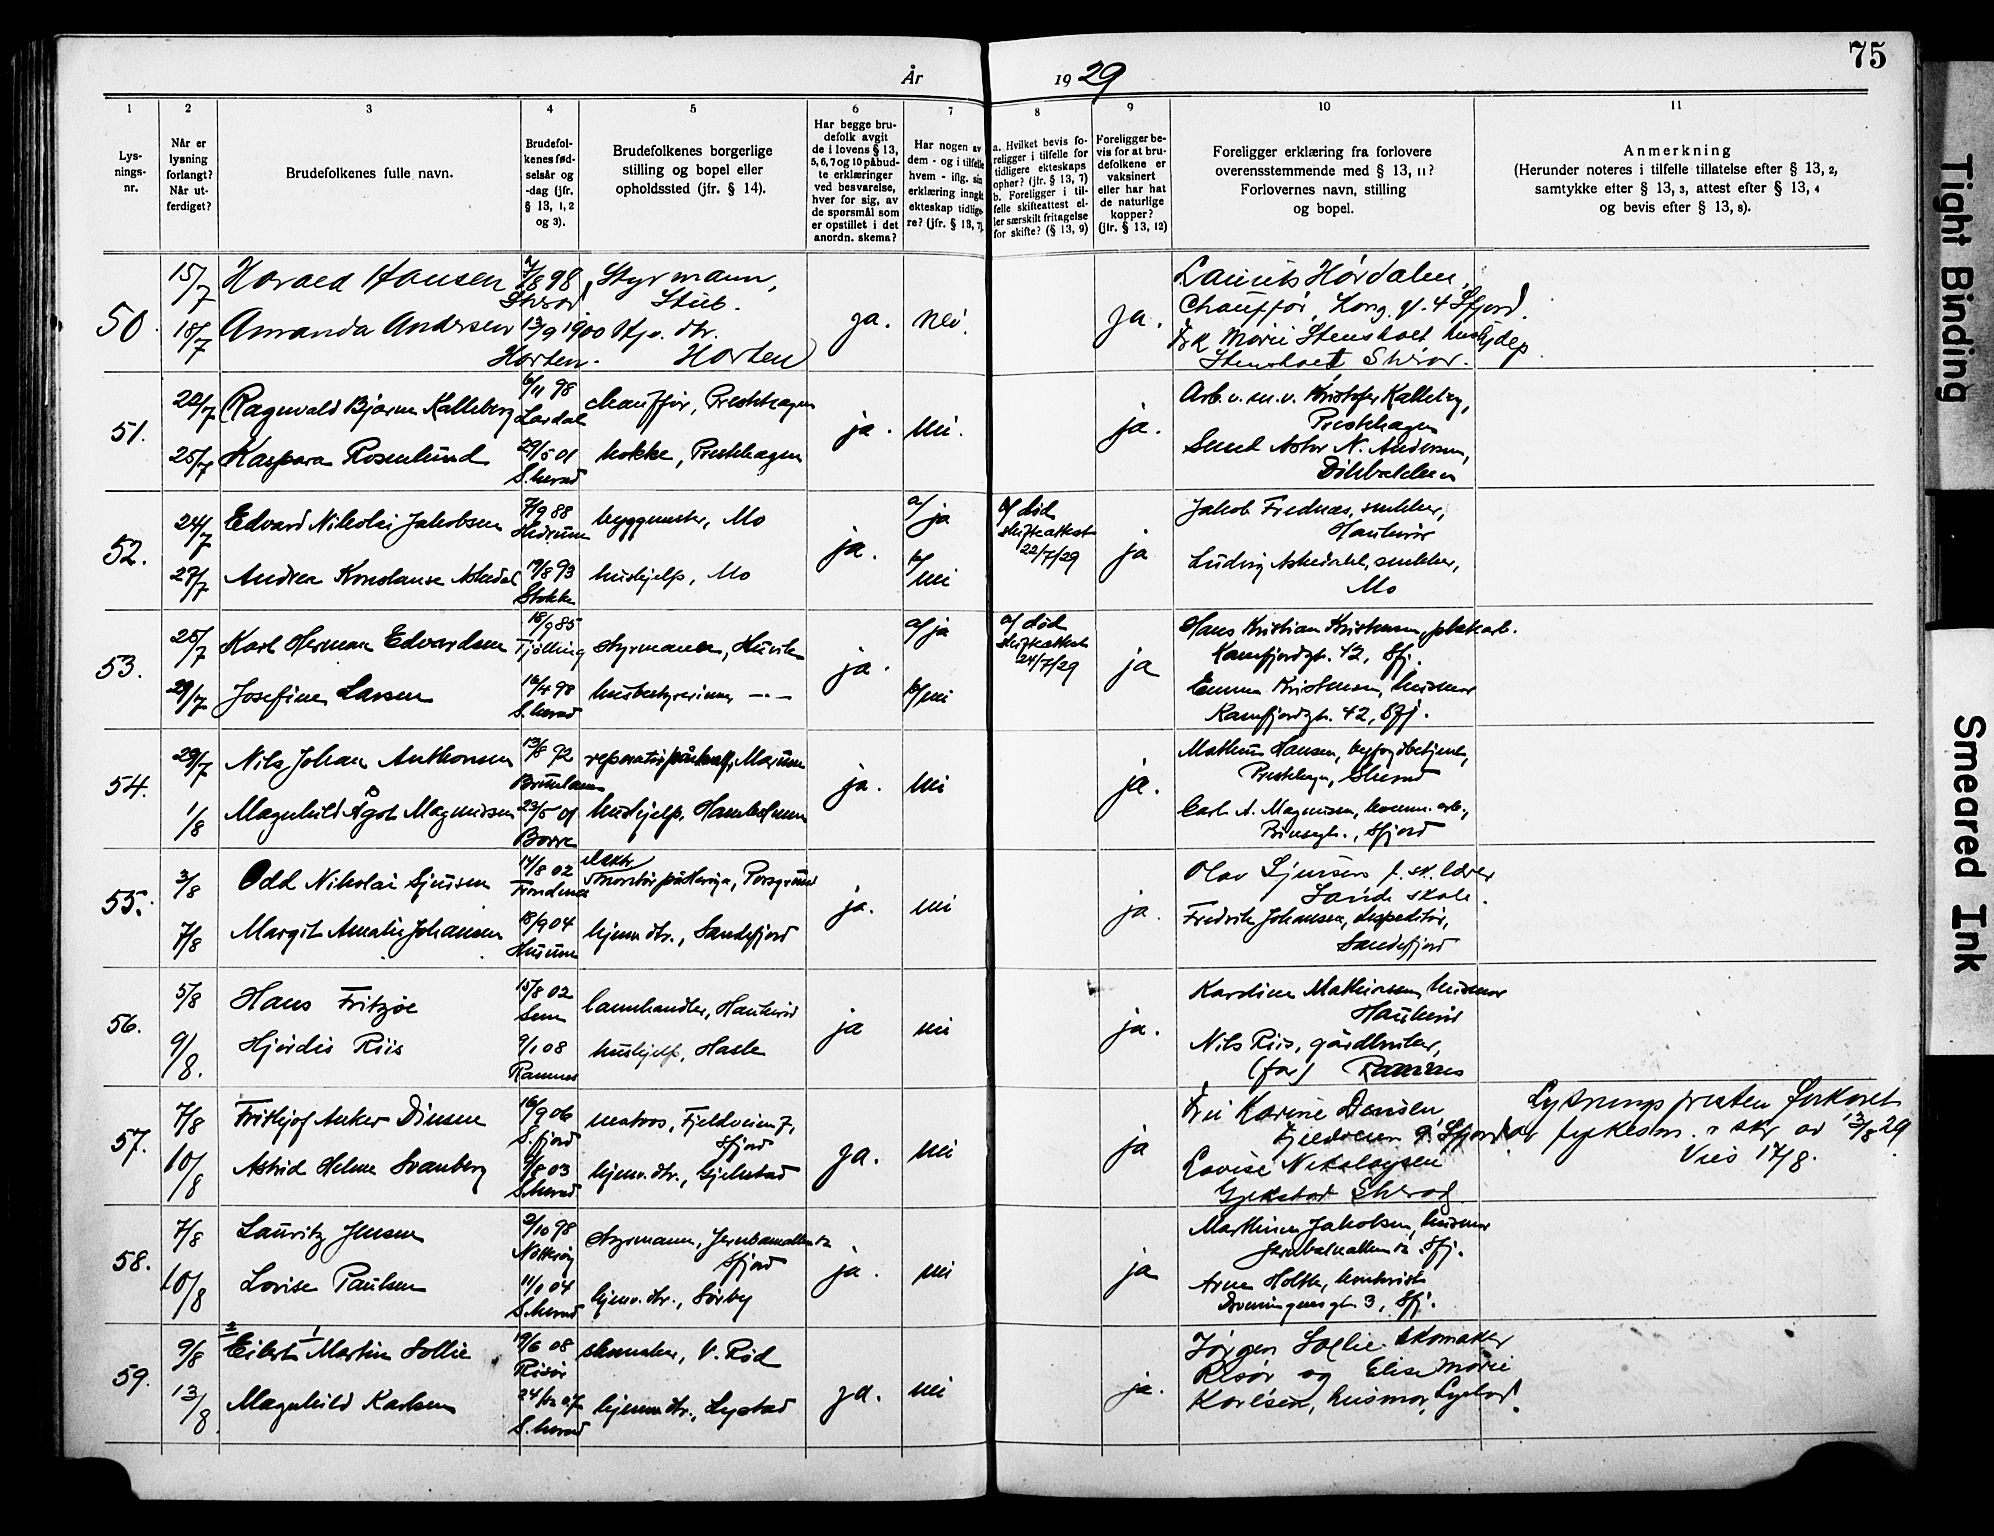 75
År 1929
1 2 3 4 5 6 7 8 9 10 11
Lysningsnr.
Når er lysning forlangt? Når utferdiget?
Brudefolkenes fulle navn.
Brudefolkenes fødselsår og -dag (jfr. § 13, 1, 2 og 3).
Brudefolkenes borgerlige stilling og bopel eller opholdssted (jfr. § 14).
Har begge brudefolk avgit de i lovens § 13, 5, 6, 7 og 10 påbudte erklæringer ved besvarelse, hver for sig, av de spørsmål som er opstillet i det anordn. skema?
Har nogen av dem - og i tilfelle hvem - iflg. sin erklæring inngått ekteskap tidligere? (jfr. § 13, 7)
a. Hvilket bevis foreligger i tilfelle for tidligere ekteskaps ophør? (jfr. § 13, 7) b. Foreligger i tilfelle skifteattest eller særskilt fritagelse for skifte? (§ 13, 9)
Foreligger bevis for at brudefolkene er vaksinert eller har hat de naturlige kopper? (jfr. § 13, 12)
Foreligger erklæring fra forlovere overensstemmende med § 13, 11? Forlovernes navn, stilling og bopel.
Anmerkning (Herunder noteres i tilfelle tillatelse efter § 13, 2, samtykke efter § 13, 3, attest efter § 13, 4 og bevis efter § 13, 8).
50. 15/7 Harald Hansen 7/8 98 Styrmann, Laurits Hørdalen,
Sherad Stub. ja. nei. ja. Chauffør, Kong. gt. 4 Sfjord.
18/7 Amanda Andersen 13/9 1900 Hjv. dtr. Frk Marie Stensholt hushjelp
Horten. Horten Stensholt Sherad.
51. 22/7 Ragnvald Bjarne Kalleberg 6/11 98 chauffør, Presthagen Arb. v. m. v. Kristofer Kalleberg,
Lardal ja. nei. ja. Presthagen
25/7 Kaspara Rosenlund 29/5 01 kokke, Presthagen Smed Astor N. Andersen,
S.herad
52. 24/7 Edvard Nikolai Jakobsen 7/9 88 byggmester, Mo a/ ja a/ død Jakob Frednes, snekker,
Hedrum ja. skifteattest 22/7/29 ja Haukerød
27/7 Andrea Konstanse Askedal 19/8 93 hushjelp, Mo b/ nei Ludvig Askedal, snekker,
Stokke Mo
53. 25/7 Karl Herman Edvardsen 18/9 85 styrmann, Huvik a/ ja a/ død Hans Kristian Kristensen, platearb.
Tjølling ja. skifteattest 24/7/29 ja Kamfjordgt. 42, Sfj.
29/7 Josefine Larsen 16/4 98 husbestyrerinne, - " - b/ nei Emma Kristensen, husmor
S.herad Kamfjordgt. 42, Sfj.
54. 29/7 Nils Johan Anthonsen 13/8 92 Mathias Hansen, byfogdbetjent,
Brunlanes ja. nei ja. Presthagen, Sherad
1/8 Magnhild Ågot Magnussen 23/5 01 hushjelp, Carl A. Magnussen, komm. arb.,
Borre Prinsegt., Sfjord
55. 3/8 Odd Nikolai Sjursen 14/8 02 elektr. montør på Herøya, Porsgrund Olav Sjursen f. sk. lærer
Trondenes ja. nei ja. Sande skole.
7/8 Margit Amalie Johansen 18/9 04 hjemv. dtr., Sandefjord Fredrik Johansen, ekspeditør,
Husum Sandefjord
56. 5/8 Hans Fritzøe 15/8 02 Haukerød Kardine Mathisen, husmor
Sem ja nei ja. Haukerød
9/8. Hjørdis Riis 9/1 08 hushjelp, Hasle Nils Riis, gårdbruker,
Ramnes (far) Ramnes
57. 7/8 Frithjof Anker Dinsen 16/9 06 matros, Fjeldveien 7, Fru Karine Densen Lysningsprøven forkortet
S.fjord Sfjord ja. nei ja Fjeldveien 9 Sfjord av fylkesm. i skr av 13/8 29
10/8 Astrid Helene Svanberg 9/8 03 hjemv. dtr., Gjekstad Lovise Nikolaysen Vies 17/8.
S.herad Gjekstad Sherad
58. 7/8 Lauritz Jensen 2/10 98 styrmann, Jernbanealleen 12 Marthine Jakobsen, husmor
Nøtterøy Sfjord ja. nei ja Jernbanealleen 12 Sfj.
10/8 Lovise Paulsen 11/1 04 hjemv. dtr., Sørby Arne Holth, kontorist
S.herad Dronningensgt. 3, Sfj.
59. 9/8 2 Eilert 1 Martin Sollie 19/6 08 skomaker, V. Rød Jørgen Sollie skomaker
Risør ja. nei ja. Risør og Elise Marie
13/8 Magnhild Karlsen 24/12 07 hjemv. dtr., Lystad Karlsen, husmor, Lystad.
S.herad
Tight Binding
Smeared Ink